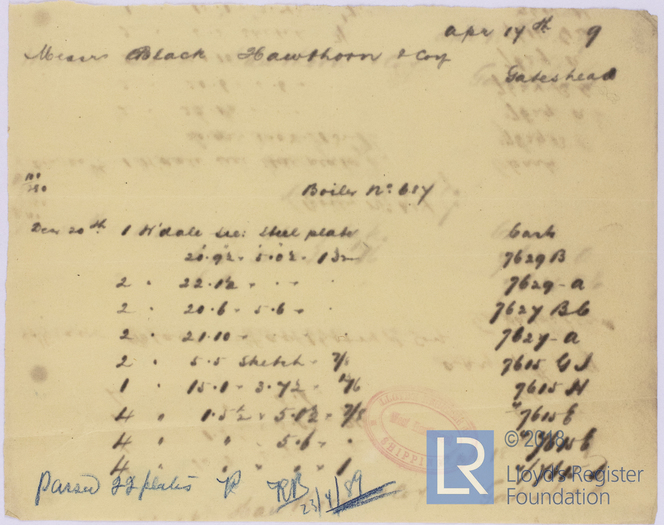 Apr 17th 9
Messrs Black Hawthorn & Coy
Gateshead
Boiler No 617
Dec 20th 1 W'dale Sie: Steel plate Cast
20.9½ 5.0½ 1 7629 B
2 " 22.1½ " " 7629-A
2 " 20.6 " 5.6 " " 7627 B C
2 " 21.10 " " 7627-A
2 " 5.5 Sketch " 7/8 7615 G J
1 " 15.1 " 3.7½ " 7615 H
4 " 1.5½ " 5.1½ " 7/8 " 7615 E
4 " " " 5.6 " "
4 " " " " " 1
Passed 22 plates
23/4/89
LLOYD'S REGISTER
SHIPPING
LR
© 2018
Lloyd's Register
Foundation